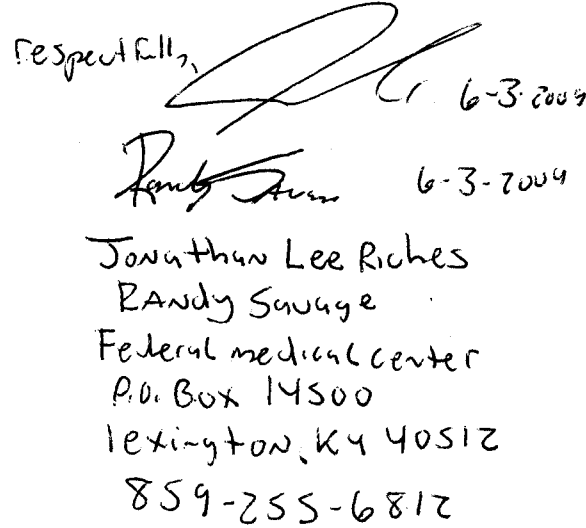 respectfully,
6-3-2009
Randy Savage 6-3-2009
Jonathan Lee Riches
RANdy Savage
Federal medical center
P.O. Box 14500
lexington, Ky 40512
859-255-6812